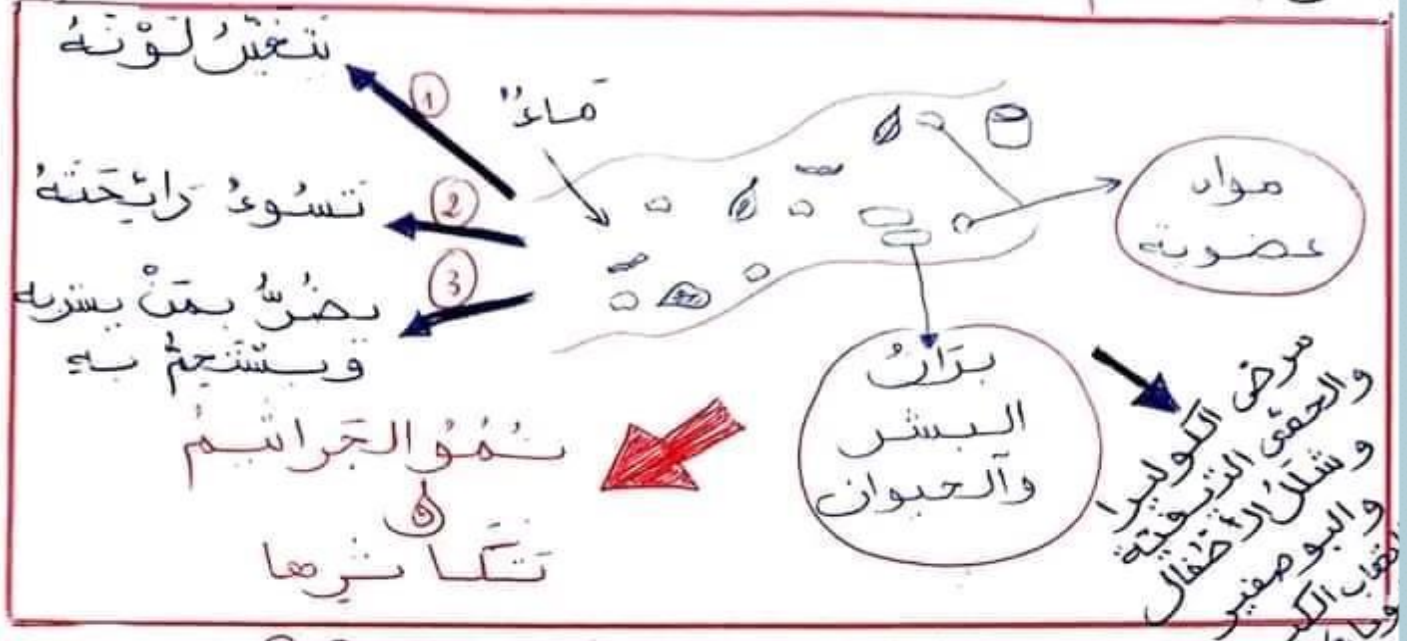 يَتَغَيَّرُ لَوْنُهُ
①
مَاءٌ
تَسُوءُ رَائِحَتُهُ
②
③
يَضُرُّ بِمَنْ يشربه
وَيَسْتَحِمُّ بِهِ
مواد
عضوية
بُرَازُ
البشر
وَالحيوان
نُمُوُّ الجَرَاثِيمُ
وَ
تَكَاثرها
مرض الكوليرا
والحمّى التيفية
وشلل الأطفال
والبوصفير
التهاب الكبد